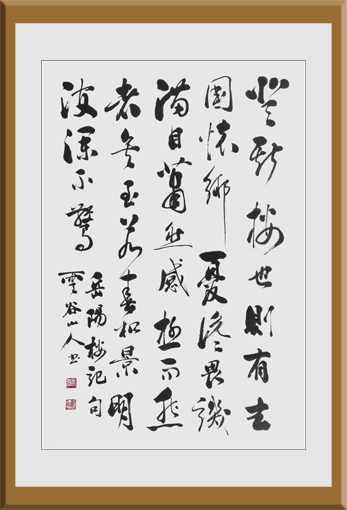 登斯樓也則有去
國懷鄉憂讒畏譏
滿目蕭然感極而悲
者矣至若春和景明
波瀾不驚
岳陽樓記句
雲谷山人書